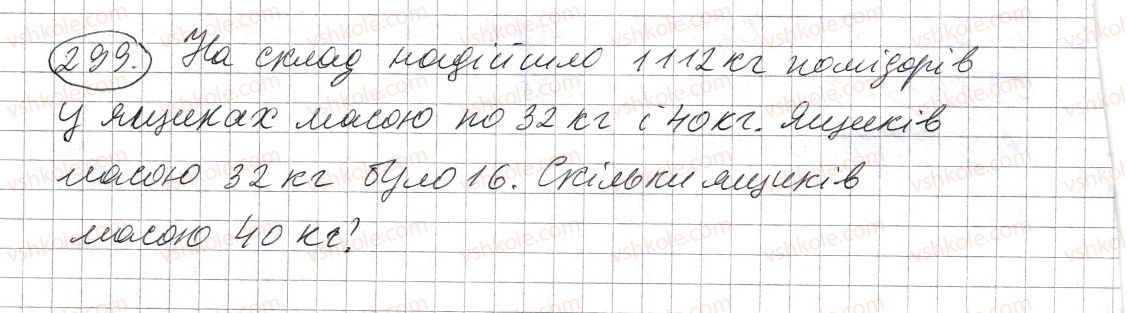 299. На склад надійшло 1112 кг помідорів
у ящиках масою по 32 кг і 40 кг. Ящиків
масою 32 кг було 16. Скільки ящиків
масою 40 кг?